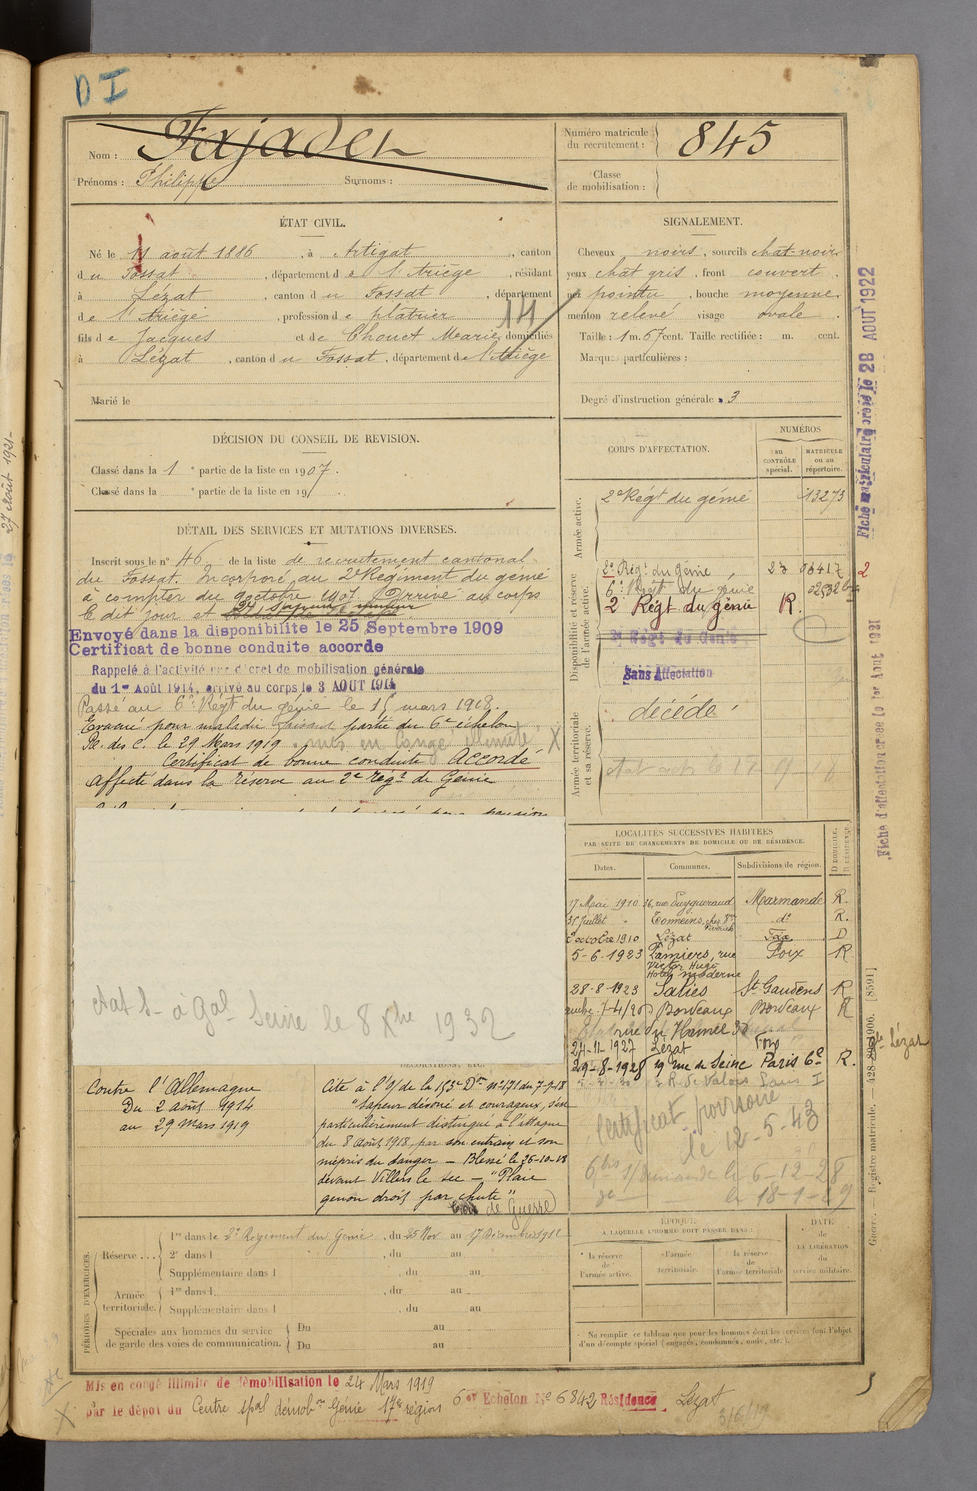 D I
Nom : Fajadet
Prénoms : Philippe Surnoms :
Numéro matricule du recrutement : 845
Classe de mobilisation :
ÉTAT CIVIL.
Né le 11 août 1886, à Artigat, canton
du Fossat, département de l'Ariège, résidant
à Lézat, canton du Fossat, département
de l'Ariège, profession de plâtrier
fils de Jacques et de Chouet Marie, domiciliés
à Lézat, canton du Fossat, département de l'Ariège
Marié le
SIGNALEMENT.
Cheveux noirs, sourcils chat-noirs
yeux chat gris, front couvert,
nez pointu, bouche moyenne,
menton relevé visage ovale.
Taille : 1 m. 67 cent. Taille rectifiée : m. cent.
Marques particulières :
Degré d'instruction générale : 3
DÉCISION DU CONSEIL DE REVISION.
Classé dans la 1e partie de la liste en 1907.
Classé dans la e partie de la liste en 19
DÉTAIL DES SERVICES ET MUTATIONS DIVERSES.
Inscrit sous le n° 46 de la liste de recrutement cantonal
du Fossat. Incorporé au 2e Régiment du génie
à compter du 9 octobre 1907. Arrivé au corps
le dit jour et
Envoyé dans la disponibilité le 25 Septembre 1909
Certificat de bonne conduite accordé
Rappelé à l'activité décret de mobilisation générale
du 1er Août 1914, arrivé au corps le 3 AOUT 1914
Passé au 6e Régt du génie le 15 mars 1918.
Evacué pour maladie faisant partie du 6e échelon
le 29 Mars 1919
Certificat de bonne conduite ACCORDÉ
Affecté dans la réserve au 2e Régt de Génie
CORPS D'AFFECTATION.
NUMÉROS
au CONTRÔLE spécial.
MATRICULE ou au répertoire.
Armée active.
2e Régt du génie 13273
Disponibilité et réserve de l'armée active.
2e Régt du Génie
6e Régt du génie
2 Régt du génie R.
2e Régt du Génie
Sans Affectation
Armée territoriale et sa réserve.
décédé
LOCALITÉS SUCCESSIVES HABITÉES
PAR SUITE DE CHANGEMENTS DE DOMICILE OU DE RÉSIDENCE.
Dates. Communes. Subdivisions de région. D DOMICILE. R RÉSIDENCE.
17 Mai 1910 Marmande R.
31 Juillet Tonneins, do R.
octobre 1910 Lézat Foix D
5-6-1923 Pamiers, rue Foix R
Victor Hugo
Hôtel moderne
28-8-1923 Salies St Gaudens R
Bordeaux Bordeaux R
24-11-1927 Lézat Foix
29-8-1928 19 rue de Seine Paris 6e R.
Certificat
le 12-5-43
6-12-28
le 8 Xbre 1932
Contre l'Allemagne
Du 2 août 1914
au 29 Mars 1919
Cité à l'O/ de la Don n° 171 du 7-9-18
"Sapeur dévoué et courageux, s'est
particulièrement distingué à l'attaque
du 8 août 1918, par son entrain et son
mépris du danger — Blessé le 26-10-18
devant Villers le sec — "Plaie
genou droit par chute"
Croix de Guerre
PÉRIODES D'EXERCICES.
Réserve . . .
1re dans le 2e Régiment du Génie, du 25 Nov au 17 Décembre 1912
2e dans l , du au
Supplémentaire dans l , du au
Armée territoriale.
1re dans l , du au
Supplémentaire dans l , du au
Spéciales aux hommes du service de garde des voies de communication.
Du au
Du au
ÉPOQUE
À LAQUELLE L'HOMME DOIT PASSER DANS :
la réserve de l'armée active.
l'armée territoriale.
la réserve de l'armée territoriale
DATE de LA LIBÉRATION du service militaire.
Ne remplir ce tableau que pour les hommes dont les services font l'objet
d'un décompte spécial (engagés, condamnés, omis, etc.).
Mis en congé illimité de démobilisation le 24 Mars 1919
par le dépôt du Centre spal démobon Génie 17e région 6e Echelon No 6842 Résidence Lézat
Fiche matriculaire créée le 28 AOUT 1922
Fiche d'affectation créée le 1er Aout 1921
Guerre. — Registre matricule.
27 Août 1921